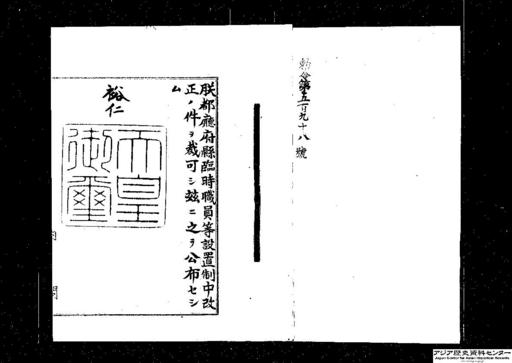 勅令第五百九十八號
朕都廳府縣臨時職員等設置制中改
正ノ件ヲ裁可シ玆ニ之ヲ公布セシ
ム
裕仁
天皇
御璽
内閣
アジア歴史資料センター
Japan Center for Asian Historical Records